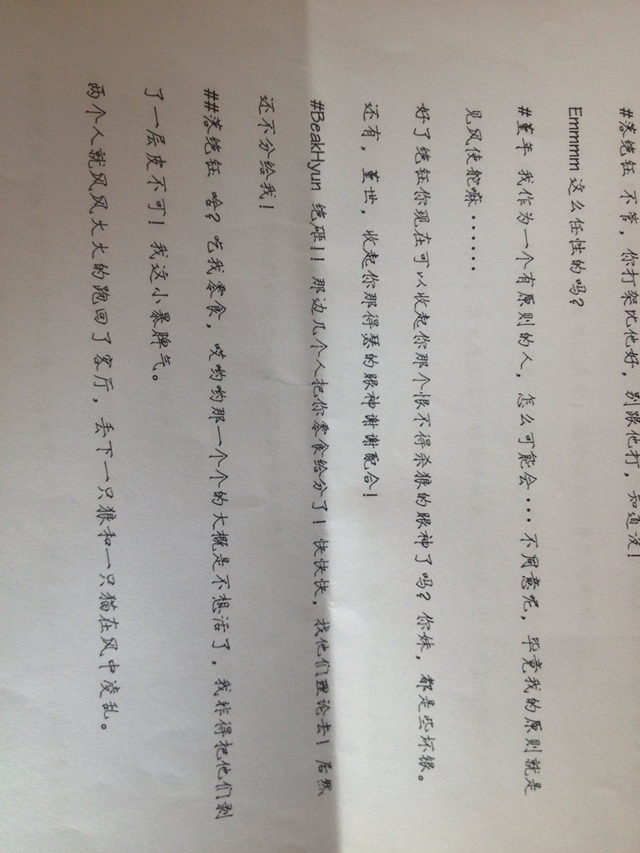 #落绝钰 不管，你打架比他好，别跟他打，知道没！
Emmmm 这么任性的吗？
#堇年 我作为一个有原则的人，怎么可能会···不同意呢，毕竟我的原则就是
见风使舵嘛······
好了绝钰你现在可以收起你那个恨不得杀狼的眼神了吗？你妹，都是些坏银。
还有，堇世，收起你那得瑟的眼神谢谢配合！
#BeakHyun 绝砸！！那边几个人把你零食给分了！快快快，找他们理论去！居然
还不分给我！
##落绝钰 啥？吃我零食，哎哟哟那一个个的大概是不想活了，我非得把他们剥
了一层皮不可！我这小暴脾气。
两个人就风风火火的跑回了客厅，丢下一只狼和一只猫在风中凌乱。